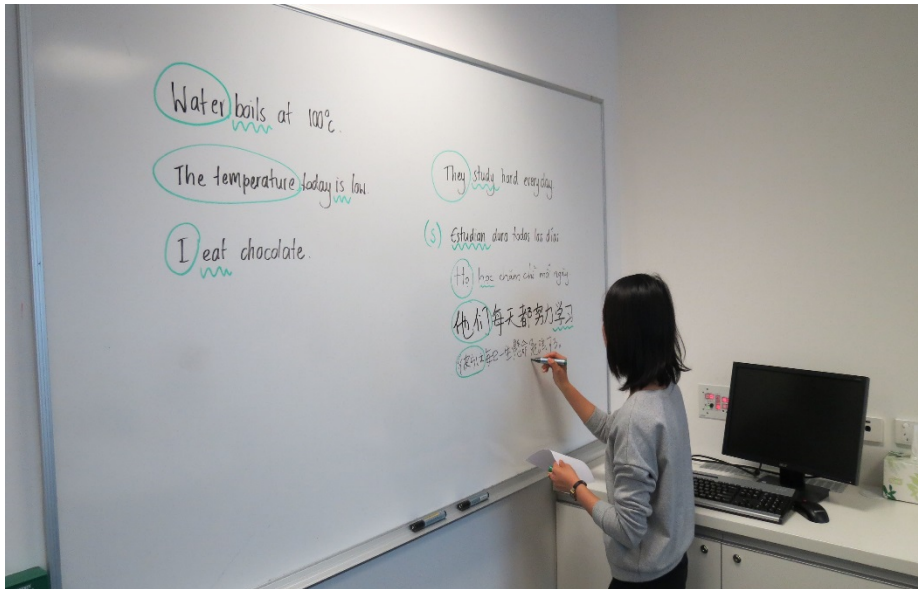 Water boils at 100°c.
The temperature today is low.
I eat chocolate.
They study hard everyday
(S) Estudian duro todos los días
Họ học chăm chỉ mỗi ngày
他们每天都努力学习
毎日一生懸命勉強